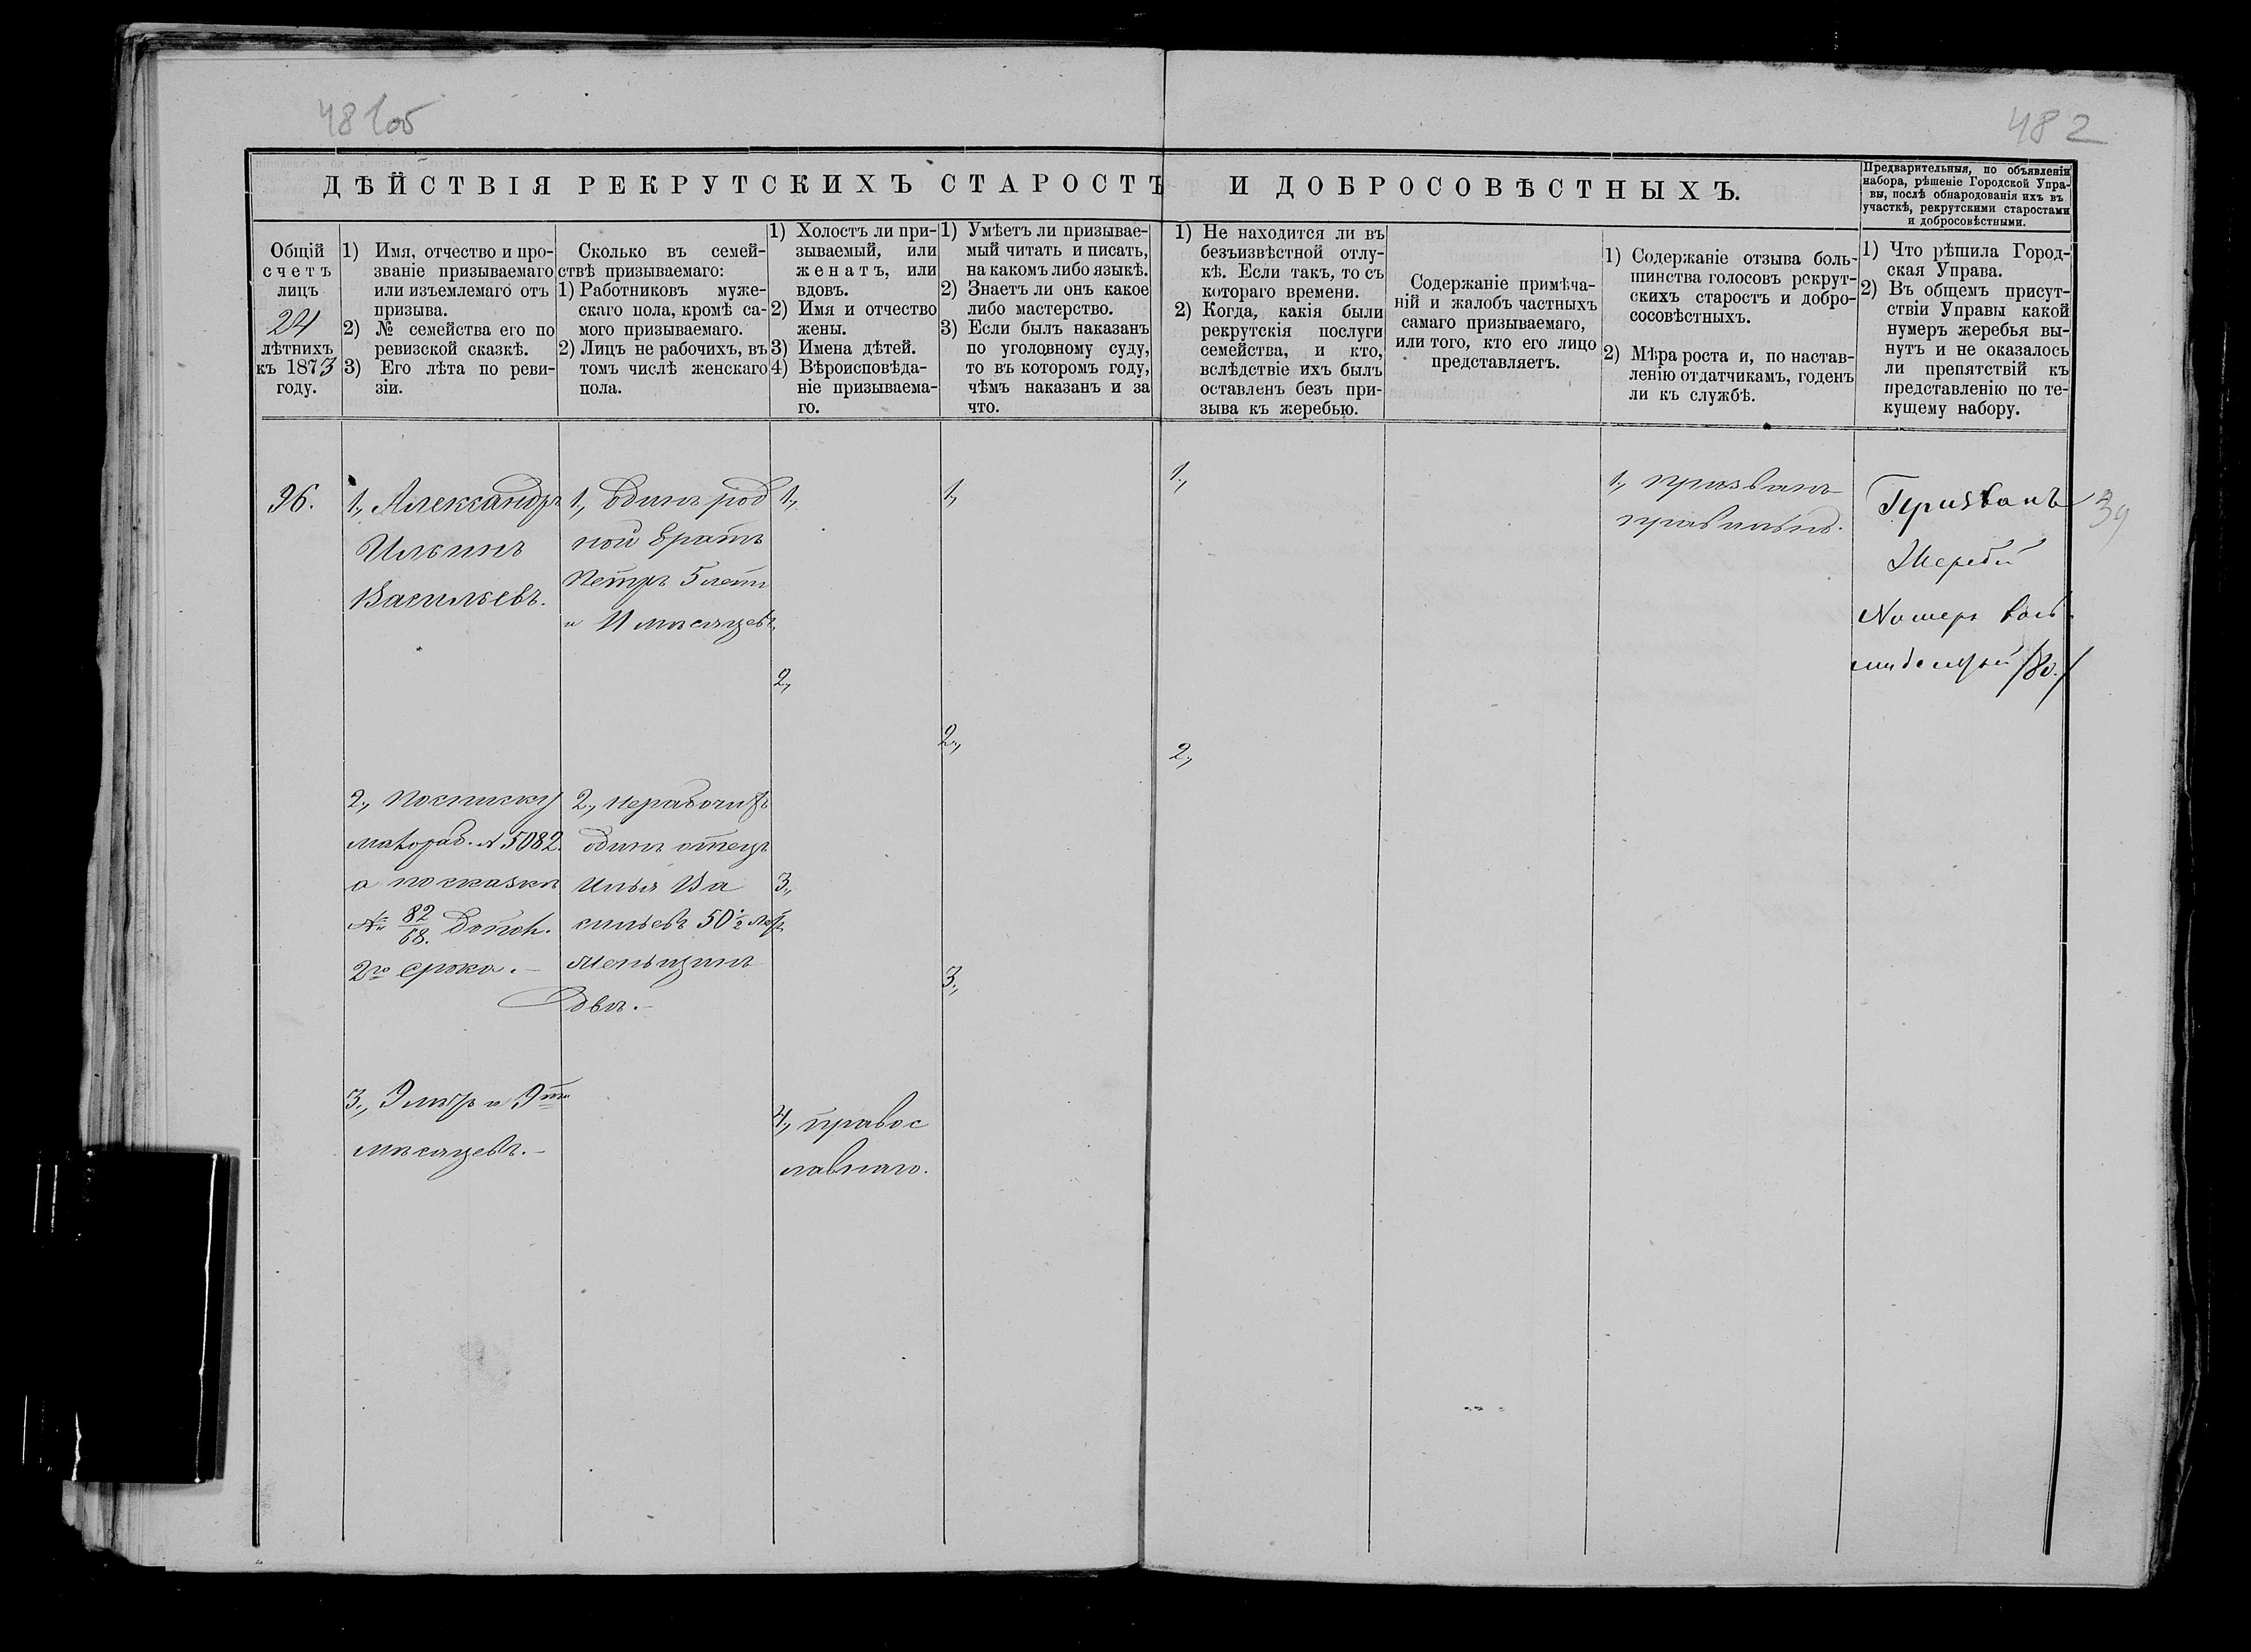 481об
482
ДѢЙСТВІЯ РЕКРУТСКИХЪ СТАРОСТЪ И ДОБРОСОВѢСТНЫХЪ.
Предварительныя, по объявленіи
набора, рѣшеніе Городской Упра-
вы, послѣ обнародованія ихъ въ
участкѣ, рекрутскими старостами
и добросовѣстными.
Общій
счетъ
лицъ
24
лѣтнихъ
къ 1873
году.
1) Имя, отчество и про-
званіе призываемаго
или изъемлемаго отъ
призыва.
2) № семейства его по
ревизской сказкѣ.
3) Его лѣта по реви-
зіи.
Сколько въ семей-
ствѣ призываемаго:
1) Работниковъ муже-
скаго пола, кромѣ са-
мого призываемаго.
2) Лицъ не рабочихъ, въ
томъ числѣ женскаго
пола.
1) Холостъ ли при-
зываемый, или
женатъ, или
вдовъ.
2) Имя и отчество
жены.
3) Имена дѣтей.
4) Вѣроисповѣда-
ніе призываема-
го.
1) Умѣетъ ли призывае-
мый читать и писать,
на какомъ либо языкѣ.
2) Знаетъ ли онъ какое
либо мастерство.
3) Если былъ наказанъ
по уголовному суду,
то въ которомъ году,
чѣмъ наказанъ и за
что.
1) Не находится ли въ
безъизвѣстной отлу-
кѣ. Если такъ, то съ
котораго времени.
2) Когда, какія были
рекрутскія послуги
семейства, и кто,
вслѣдствіе ихъ былъ
оставленъ безъ при-
зыва къ жеребью.
Содержаніе примѣча-
ній и жалобъ частныхъ
самаго призываемаго,
или того, кто его лицо
представляетъ.
1) Содержаніе отзыва боль-
шинства голосовъ рекрут-
скихъ старостъ и добро-
сосовѣстныхъ.
2) Мѣра роста и, по настав-
ленію отдатчикамъ, годенъ
ли къ службѣ.
1) Что рѣшила Город-
ская Управа.
2) Въ общемъ присут-
ствіи Управы какой
нумеръ жеребья вы-
нутъ и не оказалось
ли препятствій къ
представленію по те-
кущему набору.
96.
1, Александръ
Ильинъ
Васильевъ.
2, по списку
№ 5082.
а по сказкѣ
№ 82/68. допол.
2го срока. –
3, 9 лѣтъ и 9ти
мѣсяцевъ. –
1, одинъ род
ной братъ
Петръ 5 летъ
и 11 мѣсяцевъ.
2, нерабочихъ
одинъ отецъ
Илья Ва
сильевъ 50 1/2 летъ
женщинъ
двѣ. –
1,
2,
3,
4, правос
лавнаго.
1,
2,
3,
1,
2,
1, призванъ
правильно.
Призванъ
Жребій
Номеръ вось
мидесятый /80./
39